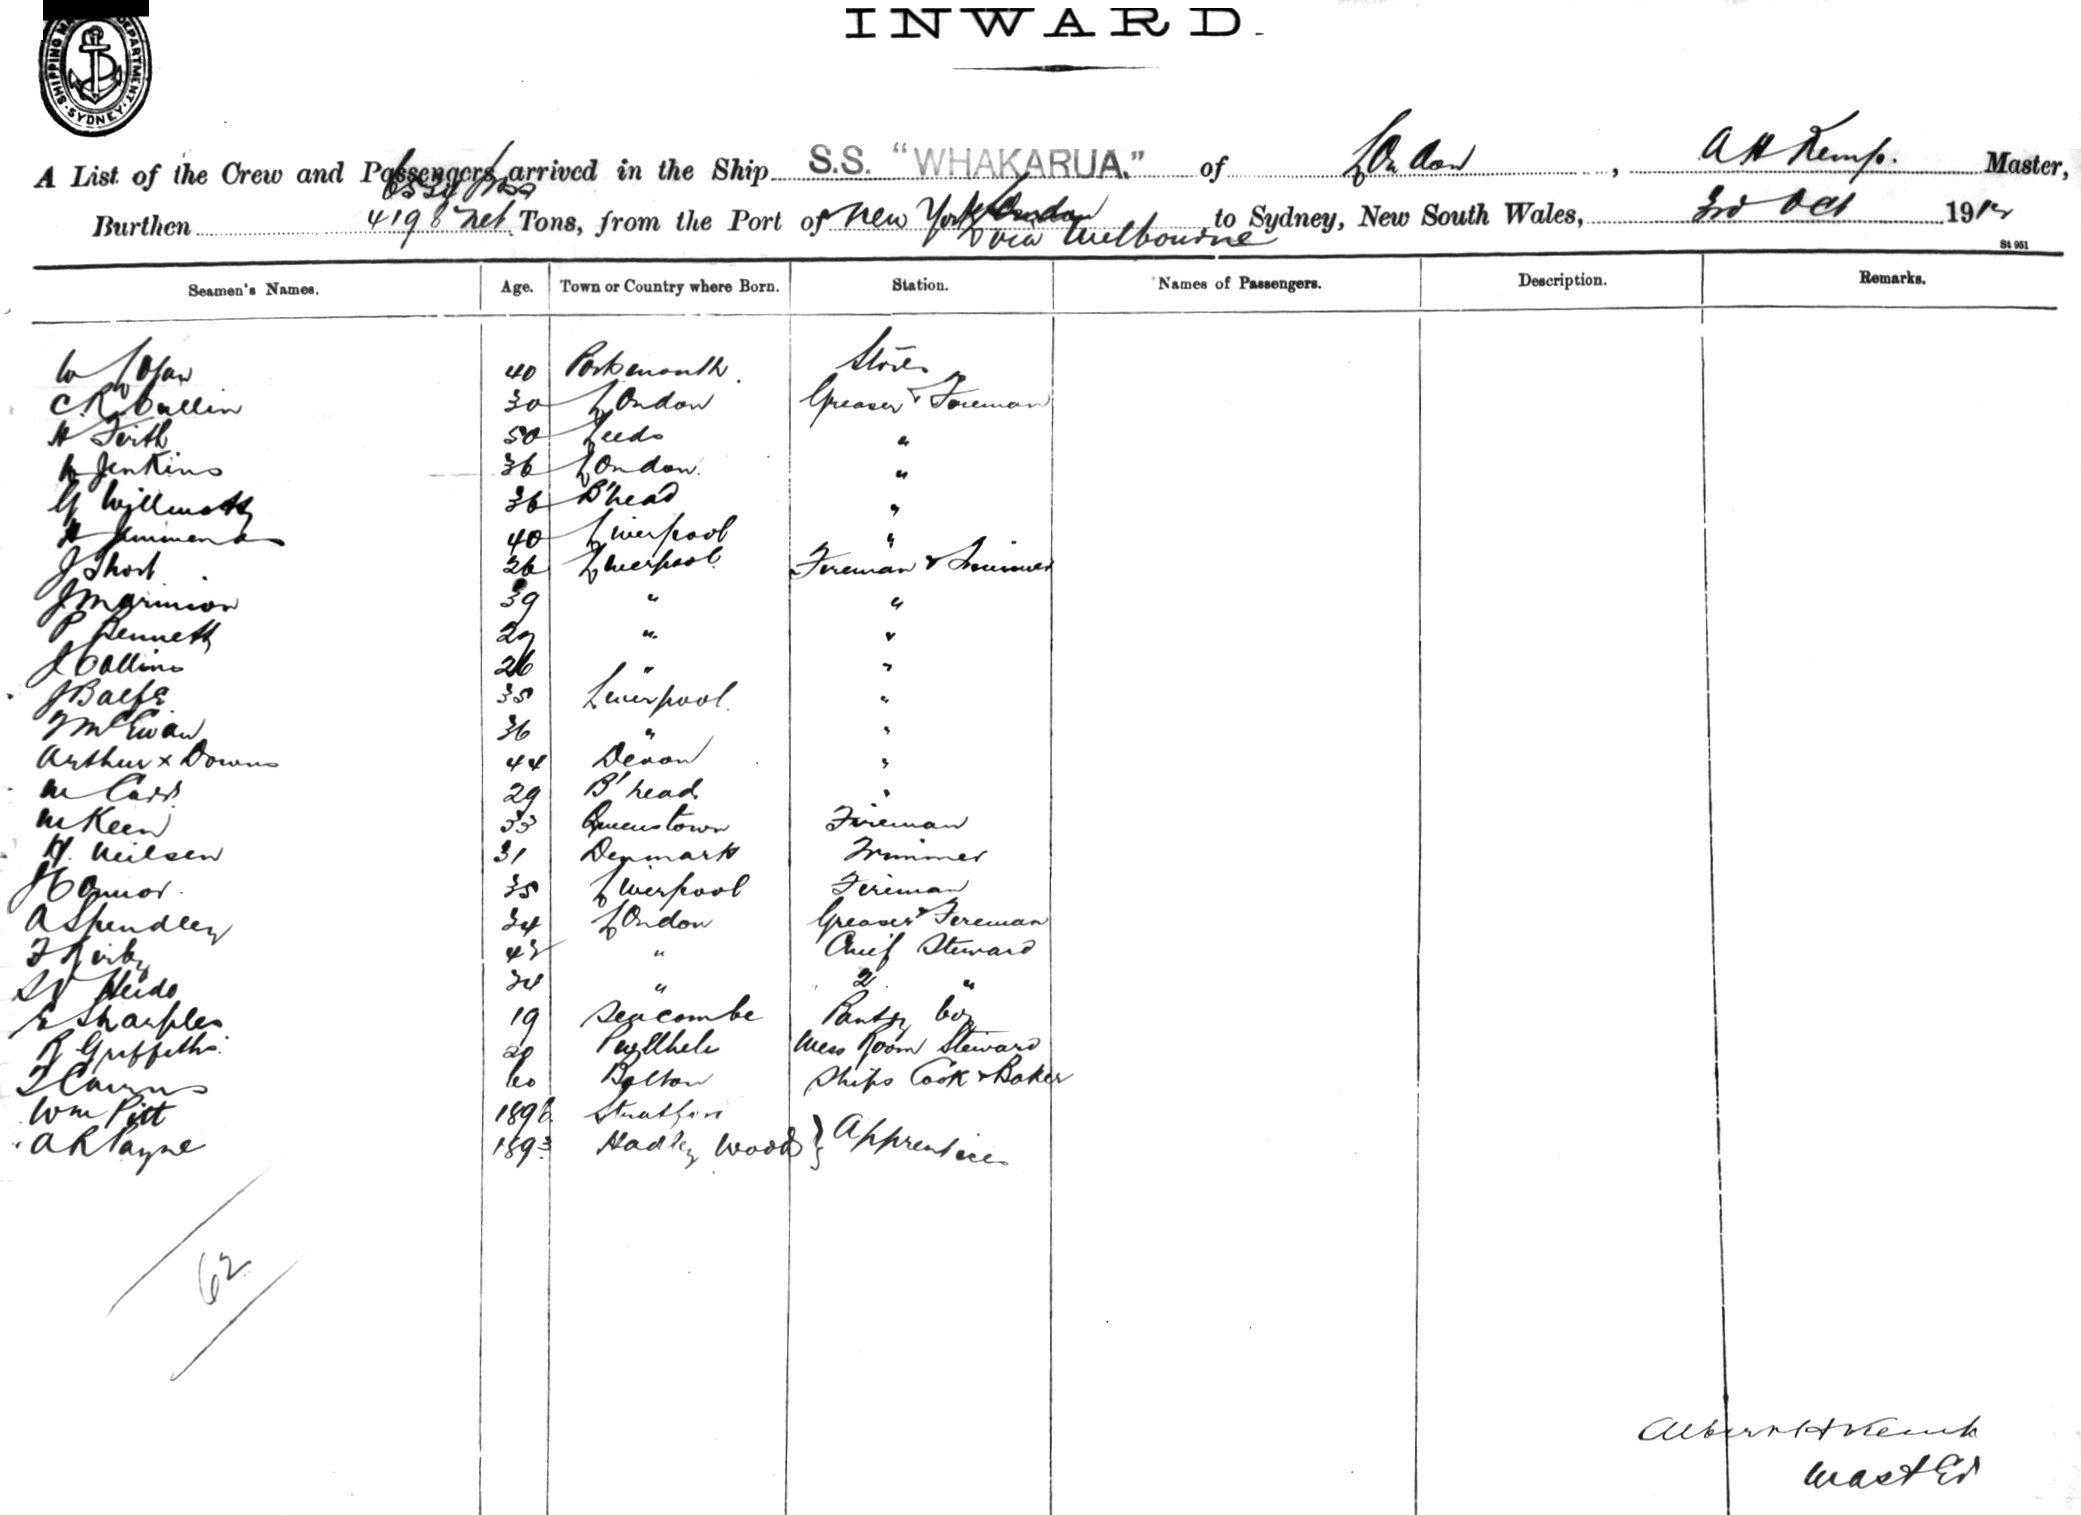 INWARD.
SHIPPING DEPARTMENT. SYDNEY.
A List of the Crew and Passengers arrived in the Ship S.S. "WHAKARUA." of London, A H Kemp. Master,
Burthen 4198 net Tons, from the Port of New York via Melbourne to Sydney, New South Wales, 3rd Oct 1912
St 951
Seamen's Names. Age. Town or Country where Born. Station. Names of Passengers. Description. Remarks.
W Logan 40 Portsmouth. Stores
C.R. Cullin 30 London Greaser & Fireman
H Firth 50 Leeds "
W Jenkins 36 London. "
G Willmott 36 B'head "
H 40 Liverpool "
J Short 26 Liverpool. Fireman & Trimmer
J Marmion 39 " "
P Bennett 29 " "
J Collins 26 " "
J Balfe 35 Liverpool. "
McEwan 36 " "
Arthur x Downs 44 Devon "
M Carr 29 B'head. "
M Keen 33 Queenstown Fireman
H. Neilsen 31 Denmark Trimmer
J Connor. 35 Liverpool Fireman
A Spendley 34 London Greaser & Fireman
F Kirby 43 " Chief Steward
34 " 2 "
E Sharples 19 Seacombe Pantry boy
R Griffiths. 20 Pwllheli Mess Room Steward
T Cairns 60 Bolton Ships Cook & Baker
Wm Pitt 1896
A R Payne 1893 Hadley Wood } Apprentices
62
Albert H Kemp
Master